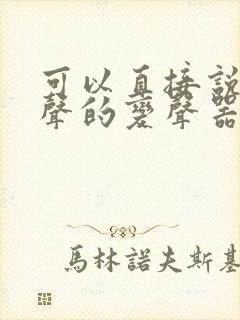 可以直接說
聲的變聲器
馬林諾夫斯基